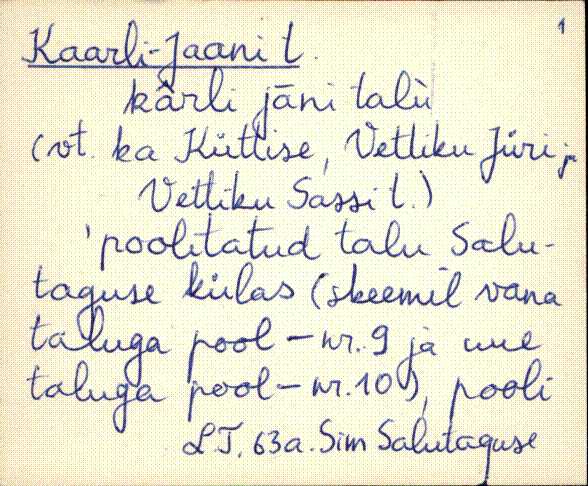 1
Kaarli-Jaani t.
kārli jāni talù
(vt. ka Küttise, Vetliku Jüri ja
Vetliku Sassi t.)
'poolitatud talu Salu-
taguse külas (skeemil vana
taluga pool - nr. 9 ja uue
taluga pool - nr. 10), pooli
L.T. 63a. Sim Salutaguse